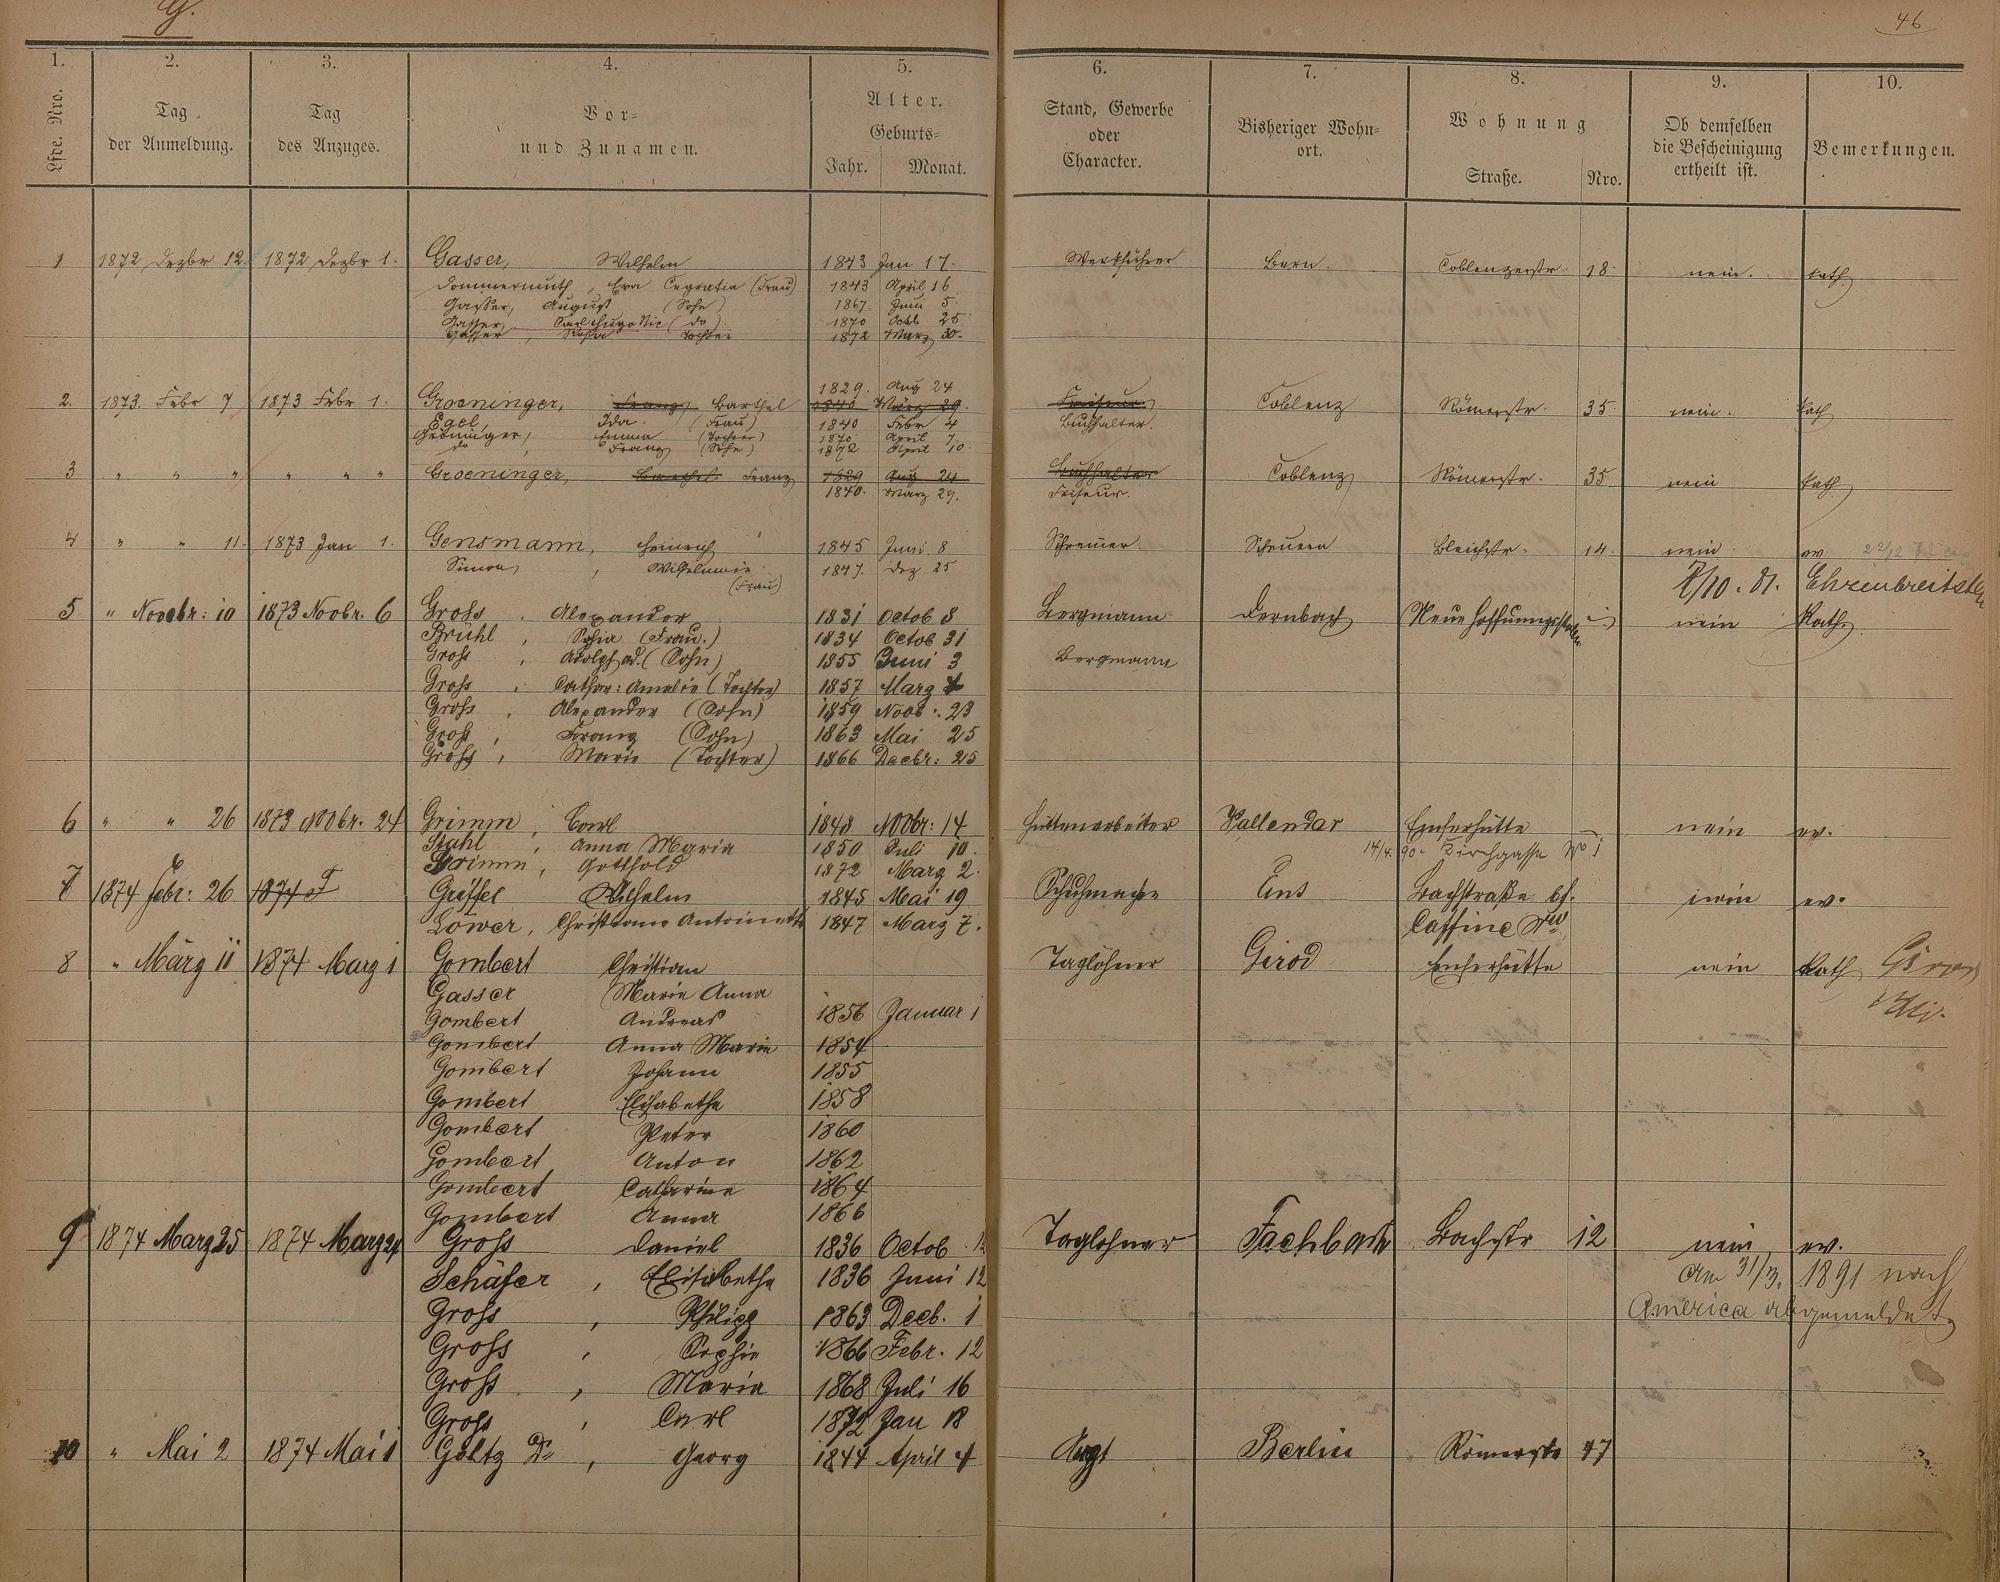 G.
46
1. 2. 3. 4. 5. 6. 7. 8. 9. 10.
Lfde. Nro.
Tag der Anmeldung.
Tag des Anzuges.
Vor- und Zunamen.
Alter.
Geburts-
Jahr. Monat.
Stand, Gewerbe oder Character.
Bisheriger Wohn- ort.
Wohnung
Straße. Nro.
Ob demselben die Bescheinigung ertheilt ist.
Bemerkungen.
1 1872 Dezbr 12. 1872 Dezbr 1. Gasser, Wilhelm 1843 Jan 17. Werkführer Bern. Coblenzerstr. 18. nein. kath.
Dommermuth, Eva (Frau) 1843 April 16
Gasser, August (Sohn) 1867. Juni 5.
Gasser, Carl Hugo Nic (do) 1870 Octb 25
Gasser, Rosa Tochter 1872 März 30.
1829. Aug 24
2. 1873. Febr 7 1873 Febr 1. Groeninger, Franz Barthel 1840 März 29. Friseur Coblenz Römerstr. 35. nein. kath
Egel, Ida. (Frau) 1840 Febr 4 Buchhalter.
Gröninger, Emma (Tochter) 1870 April 7.
do, Franz (Sohn) 1872 April 10.
3 " " " " " " Groeninger, Barthel Franz 1829 Aug 24 Buchhalter Coblenz Römerstr. 35 nein kath
1840. März 29. Friseur.
4 " " 11. 1873 Jan 1. Gensmann, Heinrich 1845 Juni 8 Schreiner. Scheuern Bleichstr. 14. nein. ev
Simon, Wilhelmine 1847. Dez 25
(Frau)
7/10. 81. Ehrenbreitstein
5 " Novebr: 10 1873 Novbr. 6 Gross, Alexander 1831 Octob 8 Bergmann Dernbach Neue Hoffnungsstollen nein Kath.
Brühl, Sofia (Frau.) 1834 Octob 31
Gross, Adolph ad. (Sohn) 1855 Juni 3 Bergmann
Gross, Cathar: Amalie (Tochter) 1857 Marz 4
Gross, Alexander (Sohn) 1859 Novb: 23
Gross, Franz (Sohn) 1863 Mai 25
Gross, Marie (Tochter) 1866 Decbr: 25
6 " " 26 1873 Novbr. 24 Grimm, Carl 1848 Novbr: 14 Hüttenarbeiter Vallendar Emserhütte nein ev.
Stahl, Anna Maria 1850 Juli 10. 14/4. 90. Kirchgasse No 1
Grimm, Gotthold 1872 Marz 2.
7 1874 Febr: 26 1874 F Griffel Wilhelm 1845 Mai 19 Schuhmacher Ems Bachstraße bf. nein ev.
Löwer, Christiane Antoinette 1847 Marz 7.
8 " März 11 1874 Marz 1 Gombert Christian Taglöhner Girod Emserhütte nein Kath
Gasser Maria Anna
Gombert Andreas 1856 Januar 1
Gombert Anna Maria 1854
Gombert Johann 1855
Gombert Elisabetha 1858
Gombert Peter 1860
Gombert Anton 1862
Gombert Catharina 1864
Gombert Anna 1866
9 1874 Marz 25 1874 Marz 24 Gross Daniel 1836 Octob. 12 Taglöhner Fachbach Bachstr 12 nein ev.
Schäfer, Elisabetha 1836 Juni 12 Am 31/3. 1891 nach
Gross, Philipp 1863 Decb. 1 America abgemeldet.
Gross, Sophie 1866 Febr. 12
Gross, Maria 1868 Juli 16
Gross, Carl 1872 Jan 18
10 " Mai 2 1874 Mai 1 Göltz Dr, Georg 1844 April 4 Arzt Berlin Römerstr 47